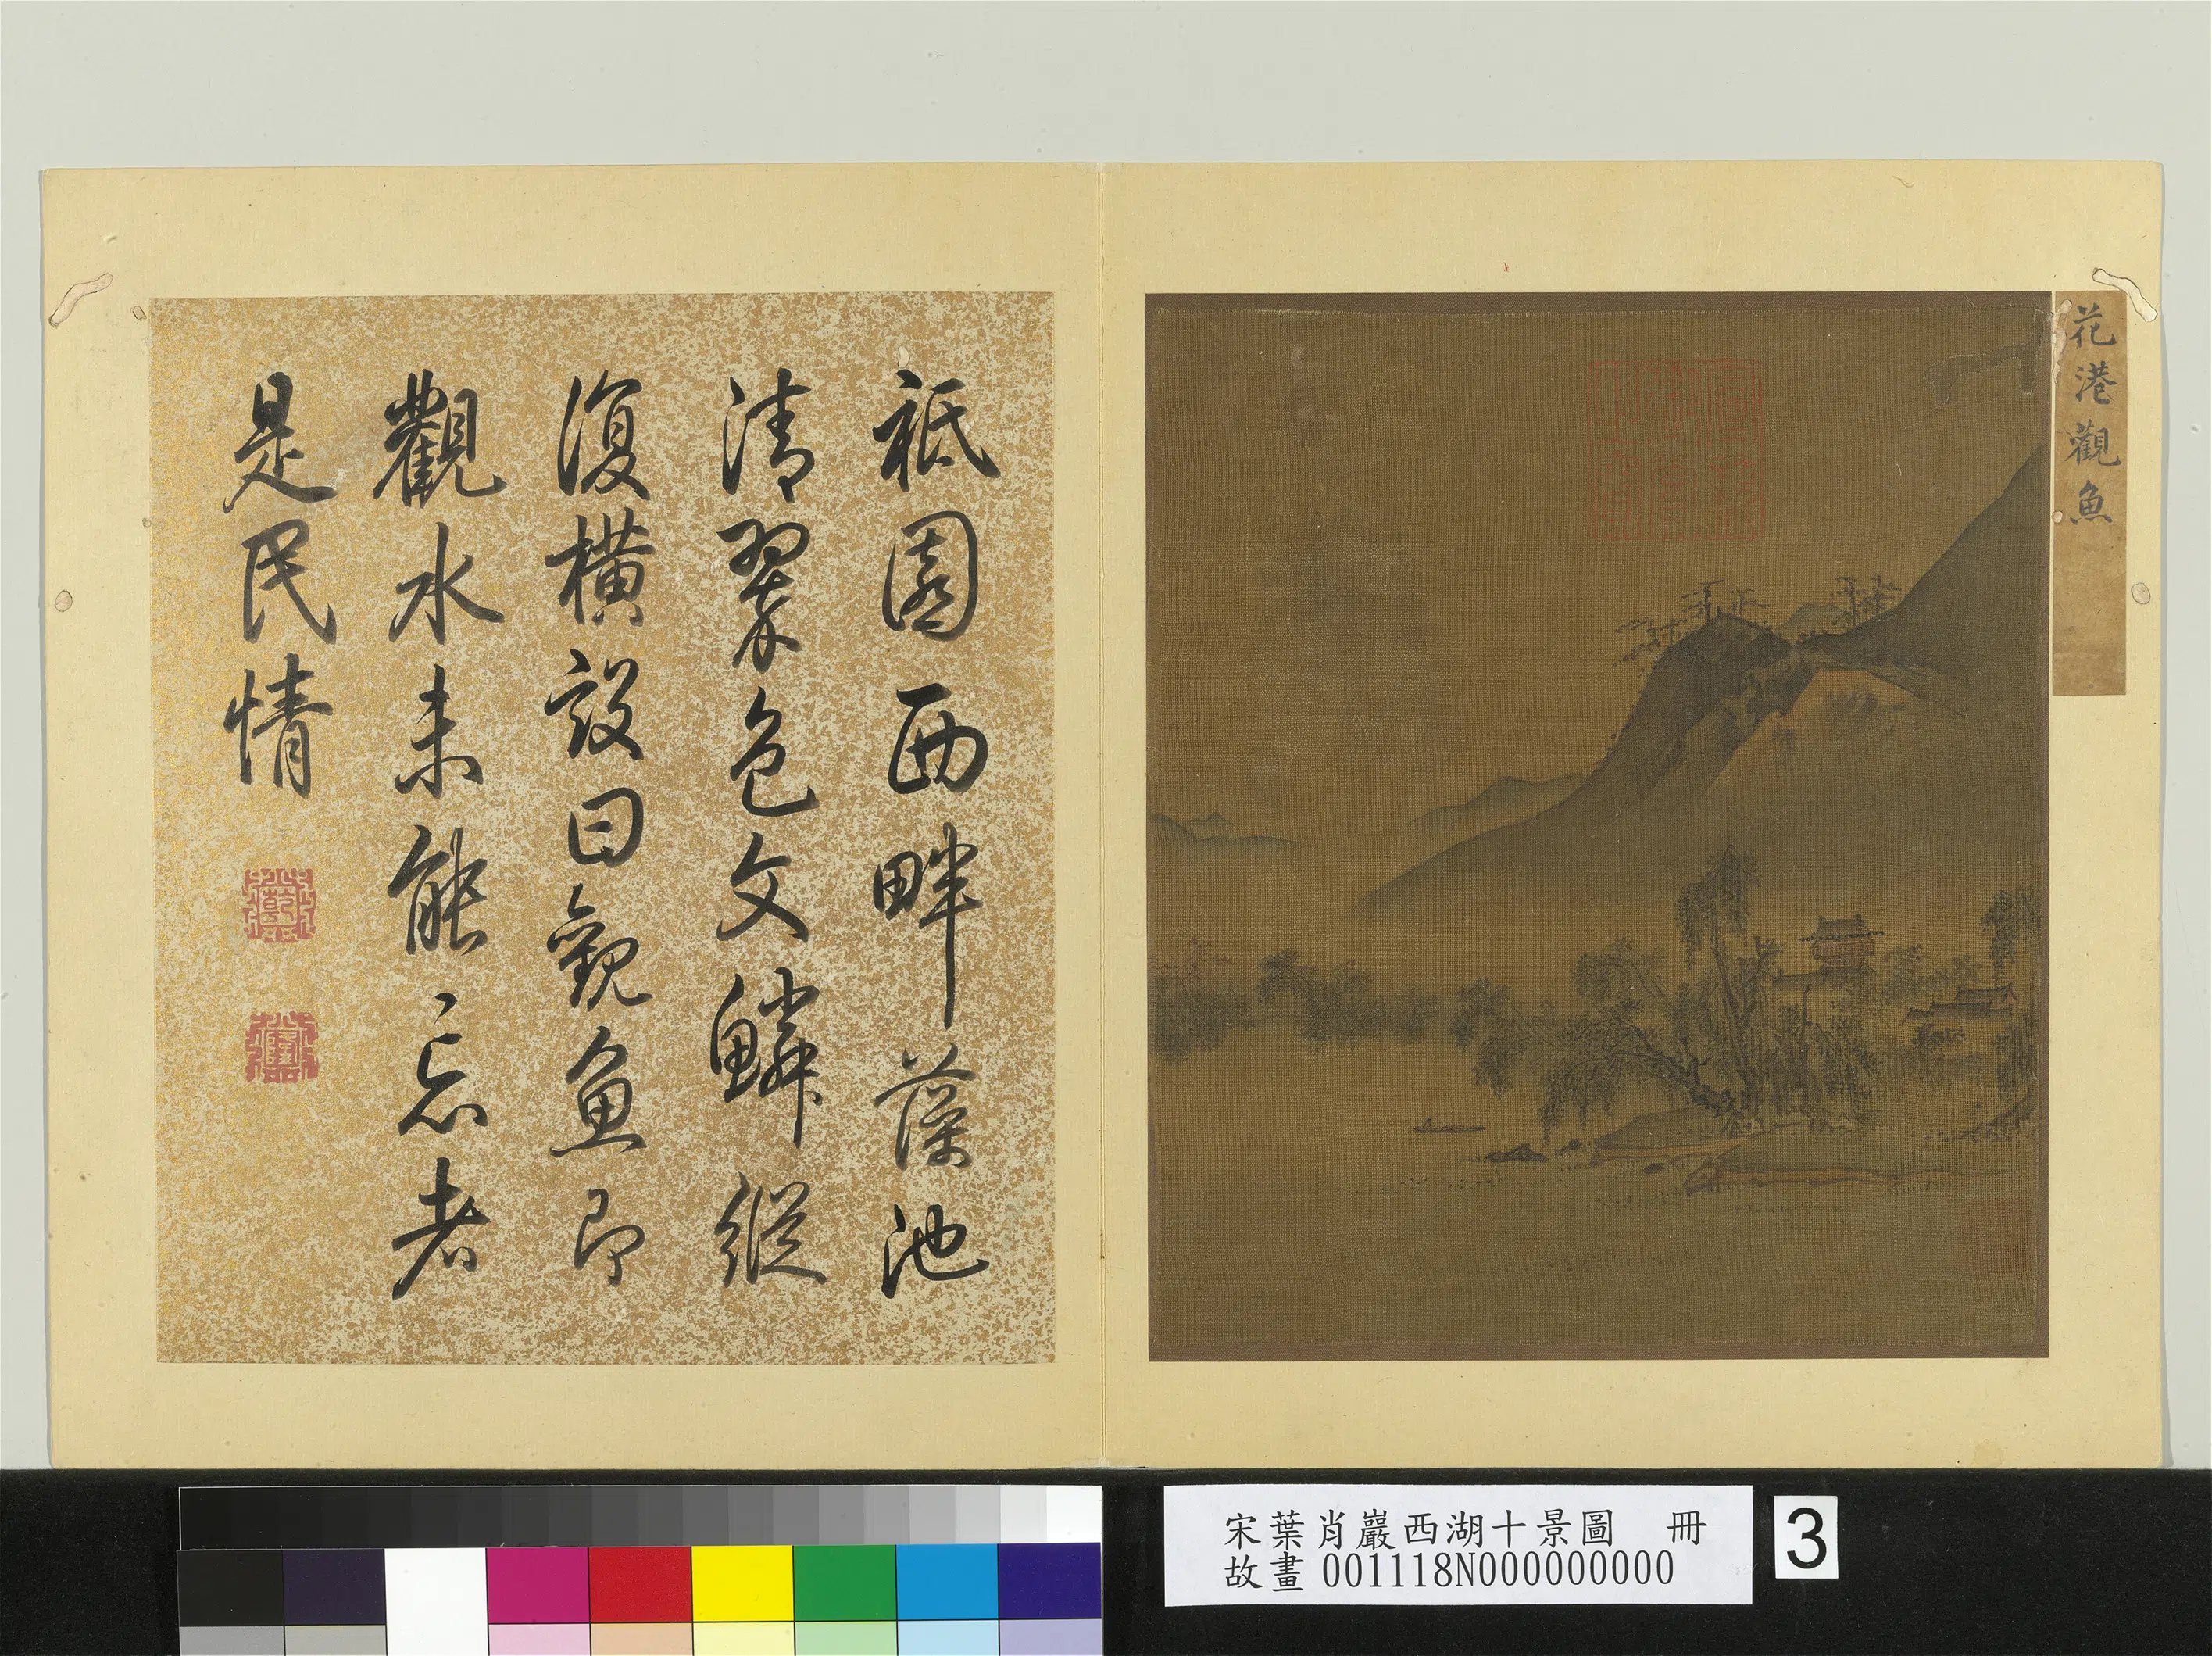 花港觀魚
祇園西畔藻池
清翠色文鱗縱
復橫設曰觀魚即
觀水未能忘者
是民情
宋葉肖巖西湖十景圖 冊
故畫 001118N000000000
3